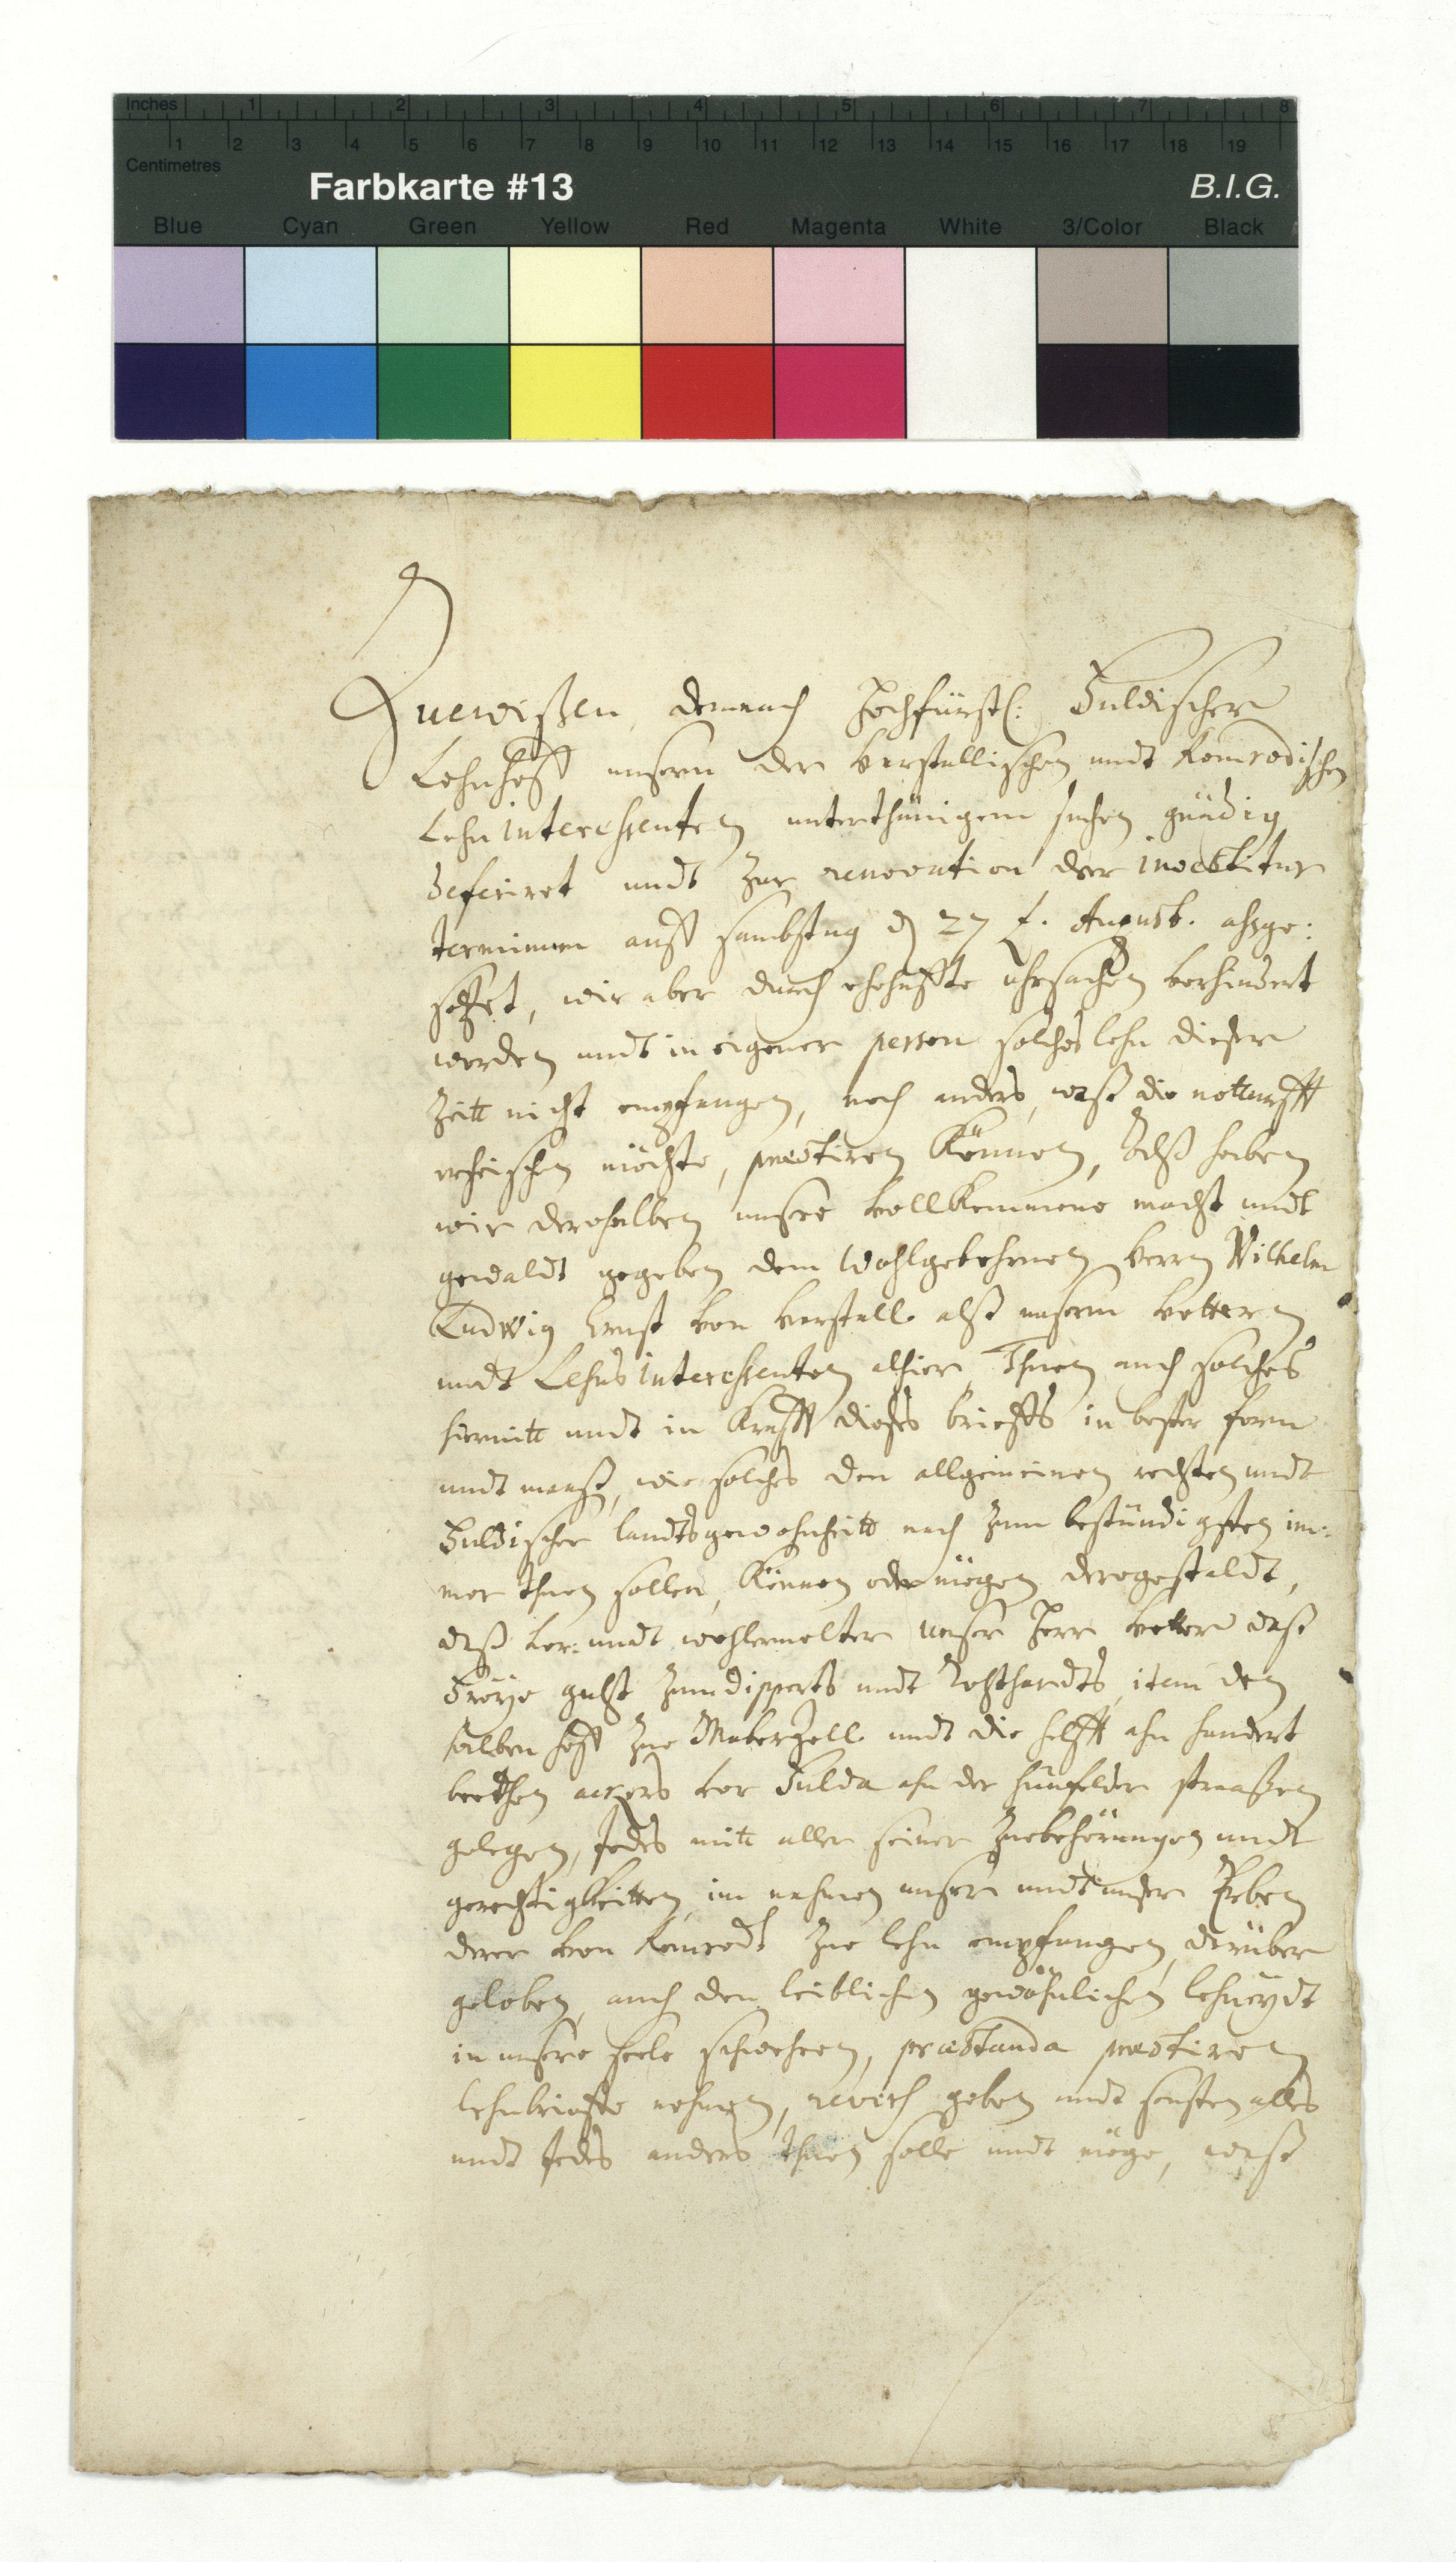 Inches 1 2 3 4 5 6 7 8
1 2 3 4 5 6 7 8 9 10 11 12 13 14 15 16 17 18 19
Centimetres
Farbkarte #13 B.I.G.
Blue Cyan Green Yellow Red Magenta White 3/Color Black
Zuewißen, demnach Hochfürstl: Fuldischer
Lehnhoff unserm der Verstellischen undt Romrodischen
Lehn interessenten unterthänigem suchen gnädig
deferiret undt zur renovation der investitur
terminum auff sambstag d 27 f. August. ahnge:
setzet, wir aber durch ehehaffte uhrsachen verhindert
werden undt in eigener person solches lehn dießer
Zeitt nicht empfangen, noch anders, waß die notturfft
erheischen möchte, praestiren können, Alß haben
wir derohalben unsere vollkommene macht undt
gewaldt gegeben dem Wohlgebohrnen Herrn Wilhelm
Ludwig Ernst von Verstell alß unserm Vettern
undt Lehns interessenten alhier, Thuen auch solches
hiermitt undt in krafft dieses brieffs in bester form
undt maaß, wie solches den allgemeinen rechten undt
Fuldischer landtsgewohnheitt nach zum beständigsten im:
mer thuen sollen, können oder mögen, derogestaldt,
daß vor: undt wohlermelter unser Herr Vetter daß
Freye guht zum dipperts undt, item den
halben hoff zue Maberzell undt die helfft ahn hundert
beethen ackers vor Fulda ahn der hünfelder straaßen
gelegen, Jedes mitt aller seiner Zuebehörungen undt
gerechtigkeitten, im nahmen unser undt unser Erben
derer von Romrodt zue lehn empfangen, darüber
geloben, auch den leiblichen gewöhnlichen lehneydt
in unsere seele schwehren, praestanda praestiren
lehnbrieffe nehmen, revers geben undt sonsten alles
undt Jedes anders thuen solle undt möge, waß